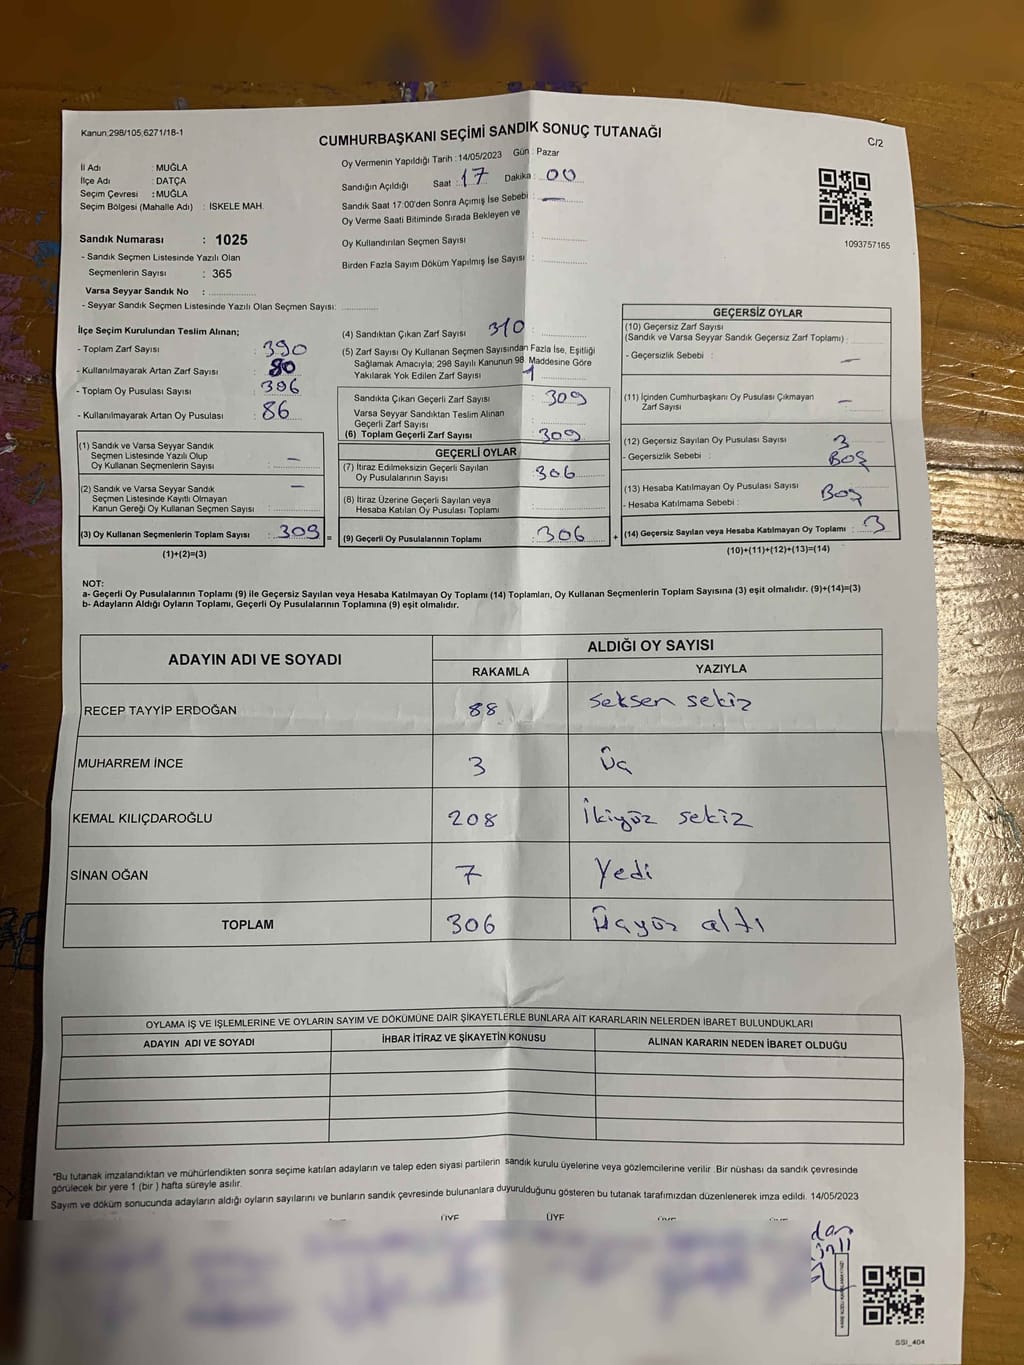 Kanun;298/105;6271/18-1
CUMHURBAŞKANI SEÇİMİ SANDIK SONUÇ TUTANAĞI
C/2
İl Adı : MUĞLA
İlçe Adı : DATÇA
Seçim Çevresi : MUĞLA
Seçim Bölgesi (Mahalle Adı) : İSKELE MAH.
Oy Vermenin Yapıldığı Tarih : 14/05/2023 Gün : Pazar
Sandığın Açıldığı Saat : 17 Dakika : 00
Sandık Saat 17:00'den Sonra Açımış İse Sebebi : —
Oy Verme Saati Bitiminde Sırada Bekleyen ve
Oy Kullandırılan Seçmen Sayısı :
Birden Fazla Sayım Döküm Yapılmış İse Sayısı :
1093757165
Sandık Numarası : 1025
- Sandık Seçmen Listesinde Yazılı Olan
Seçmenlerin Sayısı : 365
Varsa Seyyar Sandık No :
- Seyyar Sandık Seçmen Listesinde Yazılı Olan Seçmen Sayısı:
İlçe Seçim Kurulundan Teslim Alınan;
- Toplam Zarf Sayısı : 390
- Kullanılmayarak Artan Zarf Sayısı : 80
- Toplam Oy Pusulası Sayısı : 396
- Kullanılmayarak Artan Oy Pusulası : 86
(1) Sandık ve Varsa Seyyar Sandık
Seçmen Listesinde Yazılı Olup
Oy Kullanan Seçmenlerin Sayısı : —
(2) Sandık ve Varsa Seyyar Sandık
Seçmen Listesinde Kayıtlı Olmayan
Kanun Gereği Oy Kullanan Seçmen Sayısı : —
(3) Oy Kullanan Seçmenlerin Toplam Sayısı : 309 =
(1)+(2)=(3)
(4) Sandıktan Çıkan Zarf Sayısı : 310
(5) Zarf Sayısı Oy Kullanan Seçmen Sayısından Fazla İse, Eşitliği
Sağlamak Amacıyla; 298 Sayılı Kanunun 98. Maddesine Göre
Yakılarak Yok Edilen Zarf Sayısı : 1
Sandıkta Çıkan Geçerli Zarf Sayısı : 309
Varsa Seyyar Sandıktan Teslim Alınan
Geçerli Zarf Sayısı :
(6) Toplam Geçerli Zarf Sayısı : 309
GEÇERLİ OYLAR
(7) İtiraz Edilmeksizin Geçerli Sayılan
Oy Pusulalarının Sayısı : 306
(8) İtiraz Üzerine Geçerli Sayılan veya
Hesaba Katılan Oy Pusulası Toplamı :
(9) Geçerli Oy Pusulalarının Toplamı : 306 +
GEÇERSİZ OYLAR
(10) Geçersiz Zarf Sayısı
(Sandık ve Varsa Seyyar Sandık Geçersiz Zarf Toplamı) :
- Geçersizlik Sebebi : —
(11) İçinden Cumhurbaşkanı Oy Pusulası Çıkmayan
Zarf Sayısı : —
(12) Geçersiz Sayılan Oy Pusulası Sayısı : 3
- Geçersizlik Sebebi : BOŞ
(13) Hesaba Katılmayan Oy Pusulası Sayısı : Boş
- Hesaba Katılmama Sebebi :
(14) Geçersiz Sayılan veya Hesaba Katılmayan Oy Toplamı : 3
(10)+(11)+(12)+(13)=(14)
NOT:
a- Geçerli Oy Pusulalarının Toplamı (9) ile Geçersiz Sayılan veya Hesaba Katılmayan Oy Toplamı (14) Toplamları, Oy Kullanan Seçmenlerin Toplam Sayısına (3) eşit olmalıdır. (9)+(14)=(3)
b- Adayların Aldığı Oyların Toplamı, Geçerli Oy Pusulalarının Toplamına (9) eşit olmalıdır.
ADAYIN ADI VE SOYADI ALDIĞI OY SAYISI
RAKAMLA YAZIYLA
RECEP TAYYİP ERDOĞAN 88 Seksen sekiz
MUHARREM İNCE 3 Üç
KEMAL KILIÇDAROĞLU 208 İkiyüz sekiz
SİNAN OĞAN 7 Yedi
TOPLAM 306 Üçyüz altı
OYLAMA İŞ VE İŞLEMLERİNE VE OYLARIN SAYIM VE DÖKÜMÜNE DAİR ŞİKAYETLERLE BUNLARA AİT KARARLARIN NELERDEN İBARET BULUNDUKLARI
ADAYIN ADI VE SOYADI İHBAR İTİRAZ VE ŞİKAYETİN KONUSU ALINAN KARARIN NEDEN İBARET OLDUĞU
*Bu tutanak imzalandıktan ve mühürlendikten sonra seçime katılan adayların ve talep eden siyasi partilerin sandık kurulu üyelerine veya gözlemcilerine verilir .Bir nüshası da sandık çevresinde
görülecek bir yere 1 (bir ) hafta süreyle asılır.
Sayım ve döküm sonucunda adayların aldığı oyların sayılarını ve bunların sandık çevresinde bulunanlara duyurulduğunu gösteren bu tutanak tarafımızdan düzenlenerek imza edildi. 14/05/2023
ÜYE ÜYE
SSİ_404